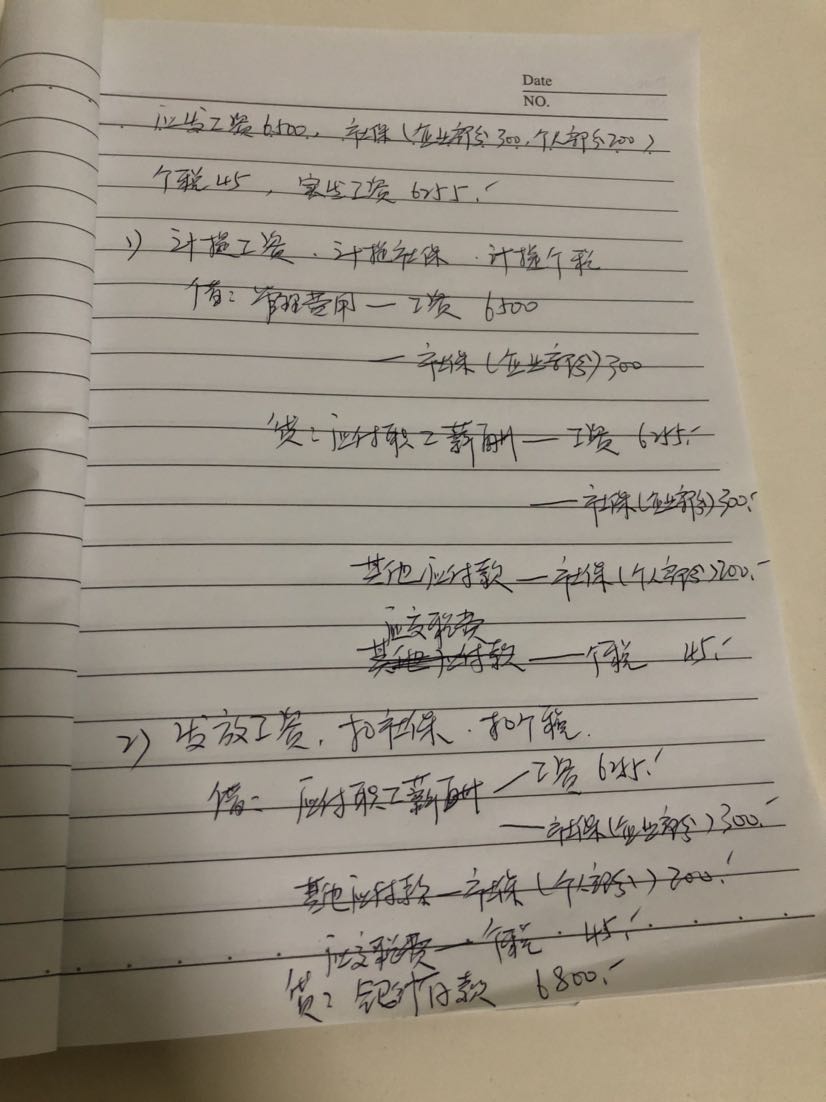 Date
NO.
应发工资6500, 社保(企业部分300,个人部分200)
个税45, 实发工资 6255.-
1) 计提工资、计提社保、计提个税
借: 管理费用—工资 6500
—社保(企业部分)300
贷: 应付职工薪酬—工资 6255.-
—社保(企业部分)300.-
其他应付款—社保(个人部分)200.-
应交税费
其他应付款—个税 45.-
2) 发放工资、扣社保、扣个税.
借: 应付职工薪酬—工资 6255.-
—社保(企业部分)300.-
其他应付款—社保(个人部分)200.-
应交税费—个税 45.-
贷: 银行存款 6800.-